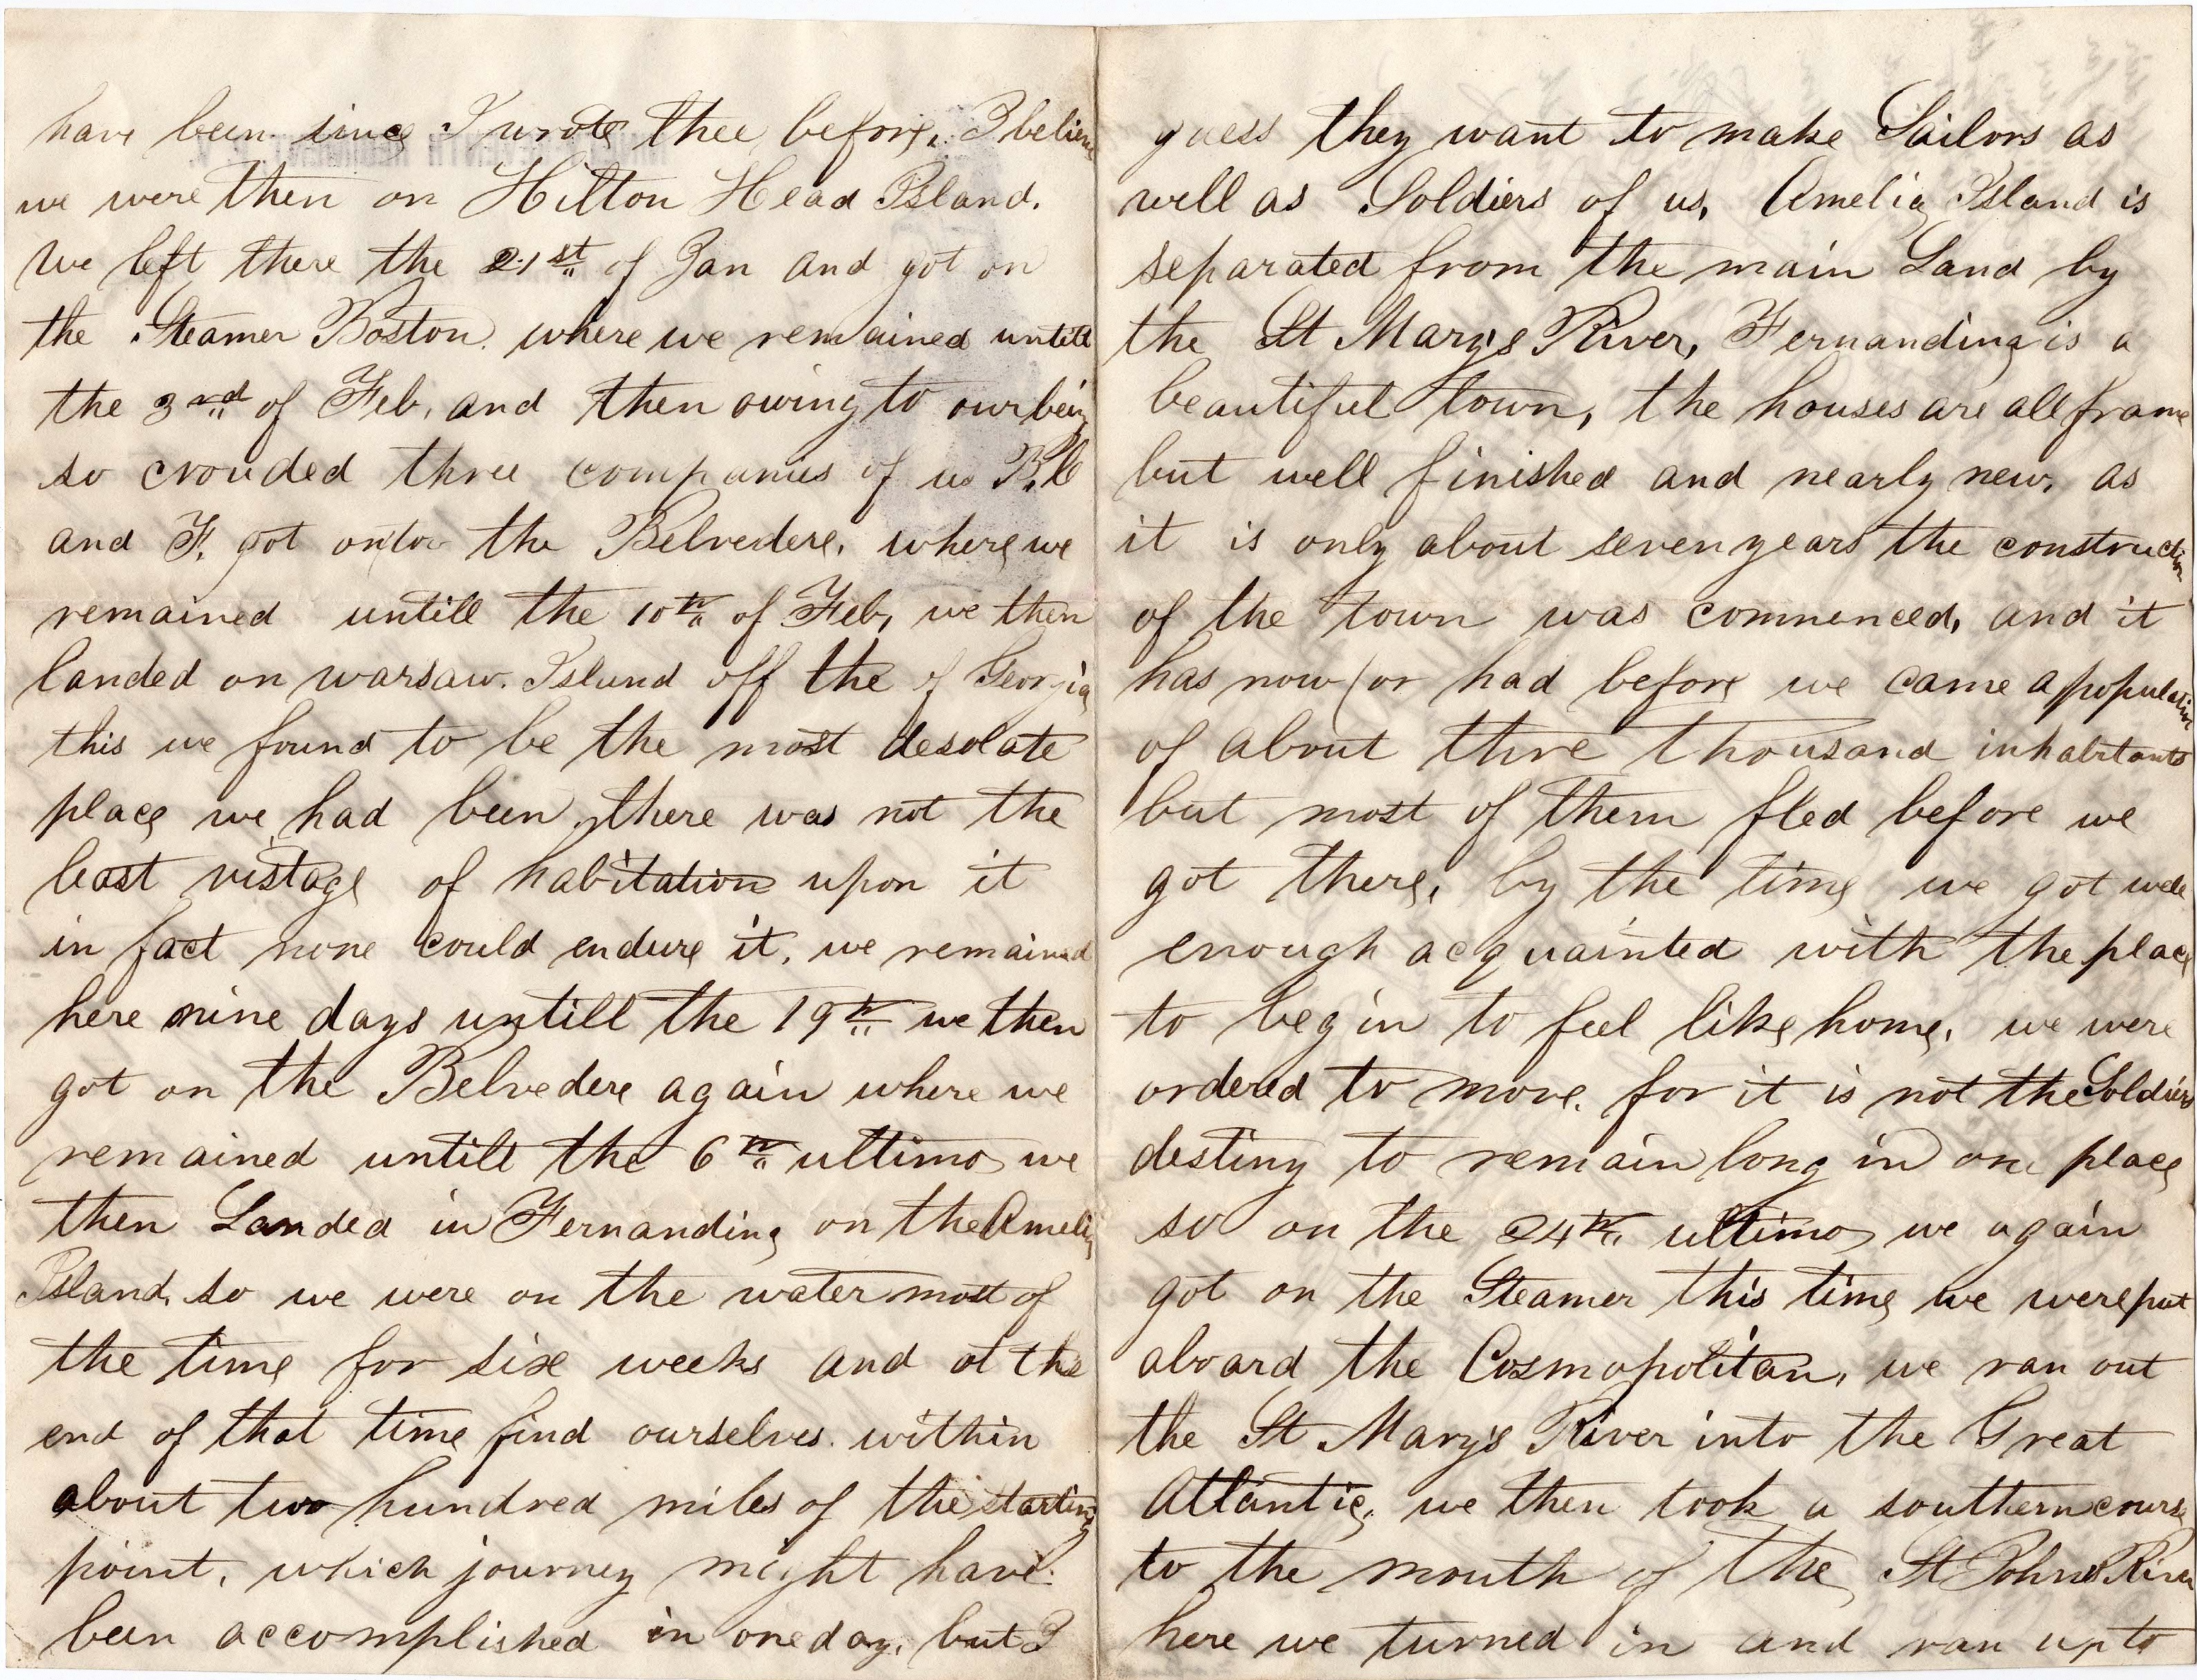 have been since I wrote thee before, I believe
we were then on Hilton Head Island.
We left there the 21st of Jan and got on
the Steamer Boston where we remained untill
the 3rd of Feb, and then owing to our being
so crouded three companies of us B,
and F, got the Belvedere, where we
remained untill the 10th of Feb, we then
landed on warsaw Island off the of Georgia
this we found to be the most desolate
place we had been, there was not the
least vistage of habitation upon it
in fact none could endure it, we remained
here nine days untill the 19th we then
got on the Belvedere again where we
remained untill the 6th ultimo we
then Landed in Fernandina on the Amelia
Island, so we were on the water most of
the time for six weeks and at the
end of that time find ourselves within
about two hundred miles of the starting
point, which journey might have
been accomplished in one day, but I
guess they want to make Sailors as
well as Soldiers of us, Amelia Island is
separated from the main Land by
the St Marys River, Fernandina is a
beautiful town, the houses are all frame
but well finished and nearly new, as
it is only about seven years the construction
of the town was commenced, and it
has now (or had before we came a population
of about thre thousand inhabitants
but most of them fled before we
got there, by the time we got well
enough acquainted with the place
to begin to feel like home, we were
ordered to move, for it is not the Soldiers
destiny to remain long in one place
so on the 24th ultimo we again
got on the Steamer this time we were put
aboard the Cosmopolitan, we ran out
the St Mary's River into the Great
Atlantic, we then took a southern course
to the mouth of the St Johns River
here we turned in and ran up to